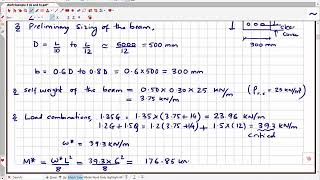 Preliminary sizing of the beam,
D = L/10 to L/12 ≃ 6000/12 = 500 mm
cover
300 mm
b = 0.6D to 0.8D = 0.6×500 = 300 mm
self weight of the beam = 0.50×0.30×25 kN/m
= 3.75 kN/m
Load combinations, 1.35G = 1.35×(3.75+14) = 23.96 kN/m
1.2G+1.5Q = 1.2(3.75+14)+1.5×(12) = 39.3 kN/m
critical
ω* = 39.3 kN/m
M* = ω*L²/8 = 39.3×6²/8 = 176.85 kN